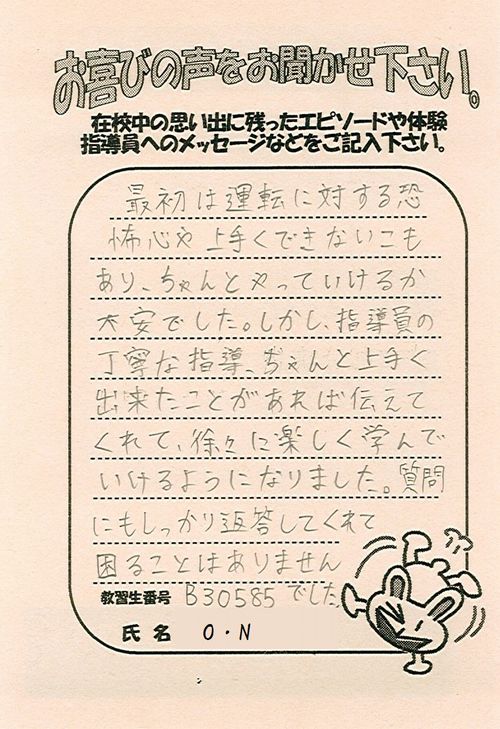 お喜びの声をお聞かせ下さい。
在校中の思い出に残ったエピソードや体験
指導員へのメッセージなどをご記入下さい。
最初は運転に対する恐
怖心や上手くできないこも
あり、ちゃんとやっていけるか
不安でした。しかし、指導員の
丁寧な指導、ちゃんと上手く
出来たことがあれば伝えて
くれて、徐々に楽しく学んで
いけるようになりました。質問
にもしっかり返答してくれて
困ることはありません
教習生番号 B30585 でした。
氏名 O・N